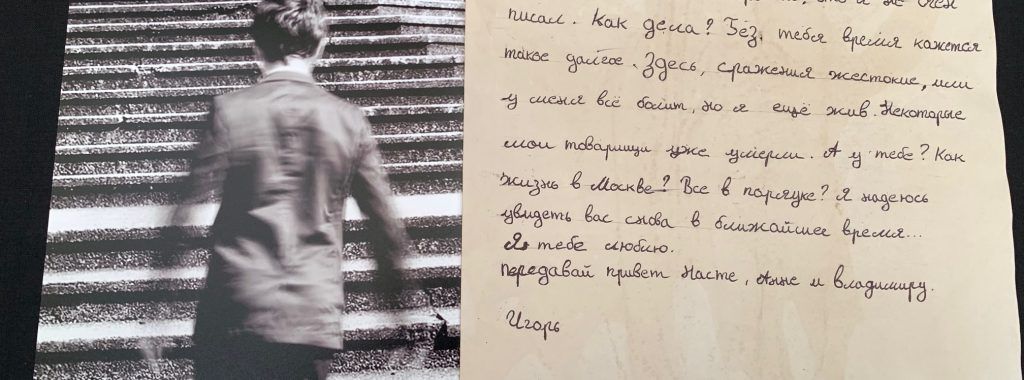 что я не очен
писал. Как дела? Без тебя время кажется
такое далгое. Здесь, сражения жестокие, или
у меня всё болит, но я ещё жив. Некоторые
мои товарищи уже умерли. А у тебе? Как
жизнь в Москве? Все в порядке? Я надеюсь
увидеть вас снова в ближайшее время...
Я тебе люблю.
Передавай привет Насте, Анне и Владимиру.
Игорь